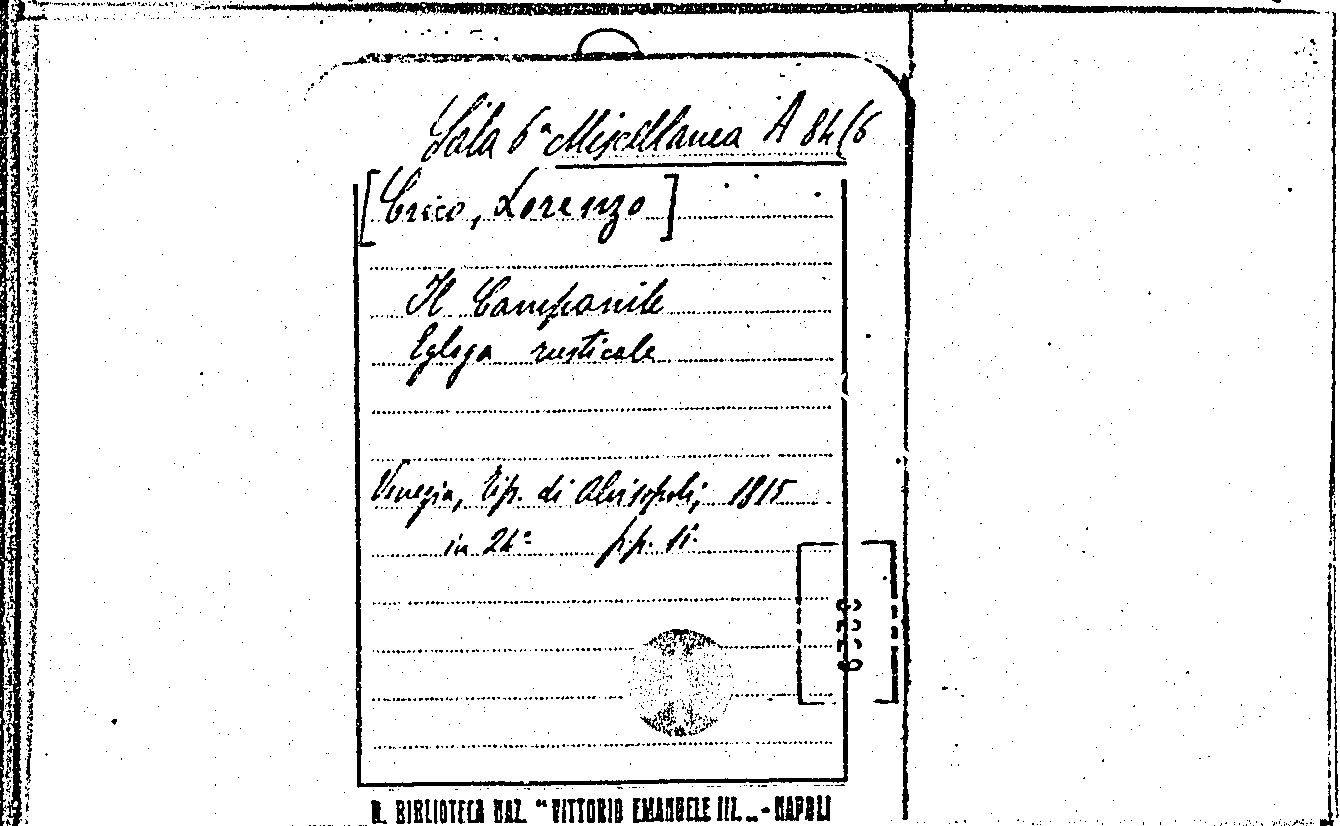 Sala 6ª Miscellanea A 84/6
[Crico, Lorenzo]
Il Campanile
Egloga rusticale
Venezia, Tip. di Alvisopoli, 1815
in 24º pp.
R. BIBLIOTECA NAZ. "VITTORIO EMANUELE III" - NAPOLI